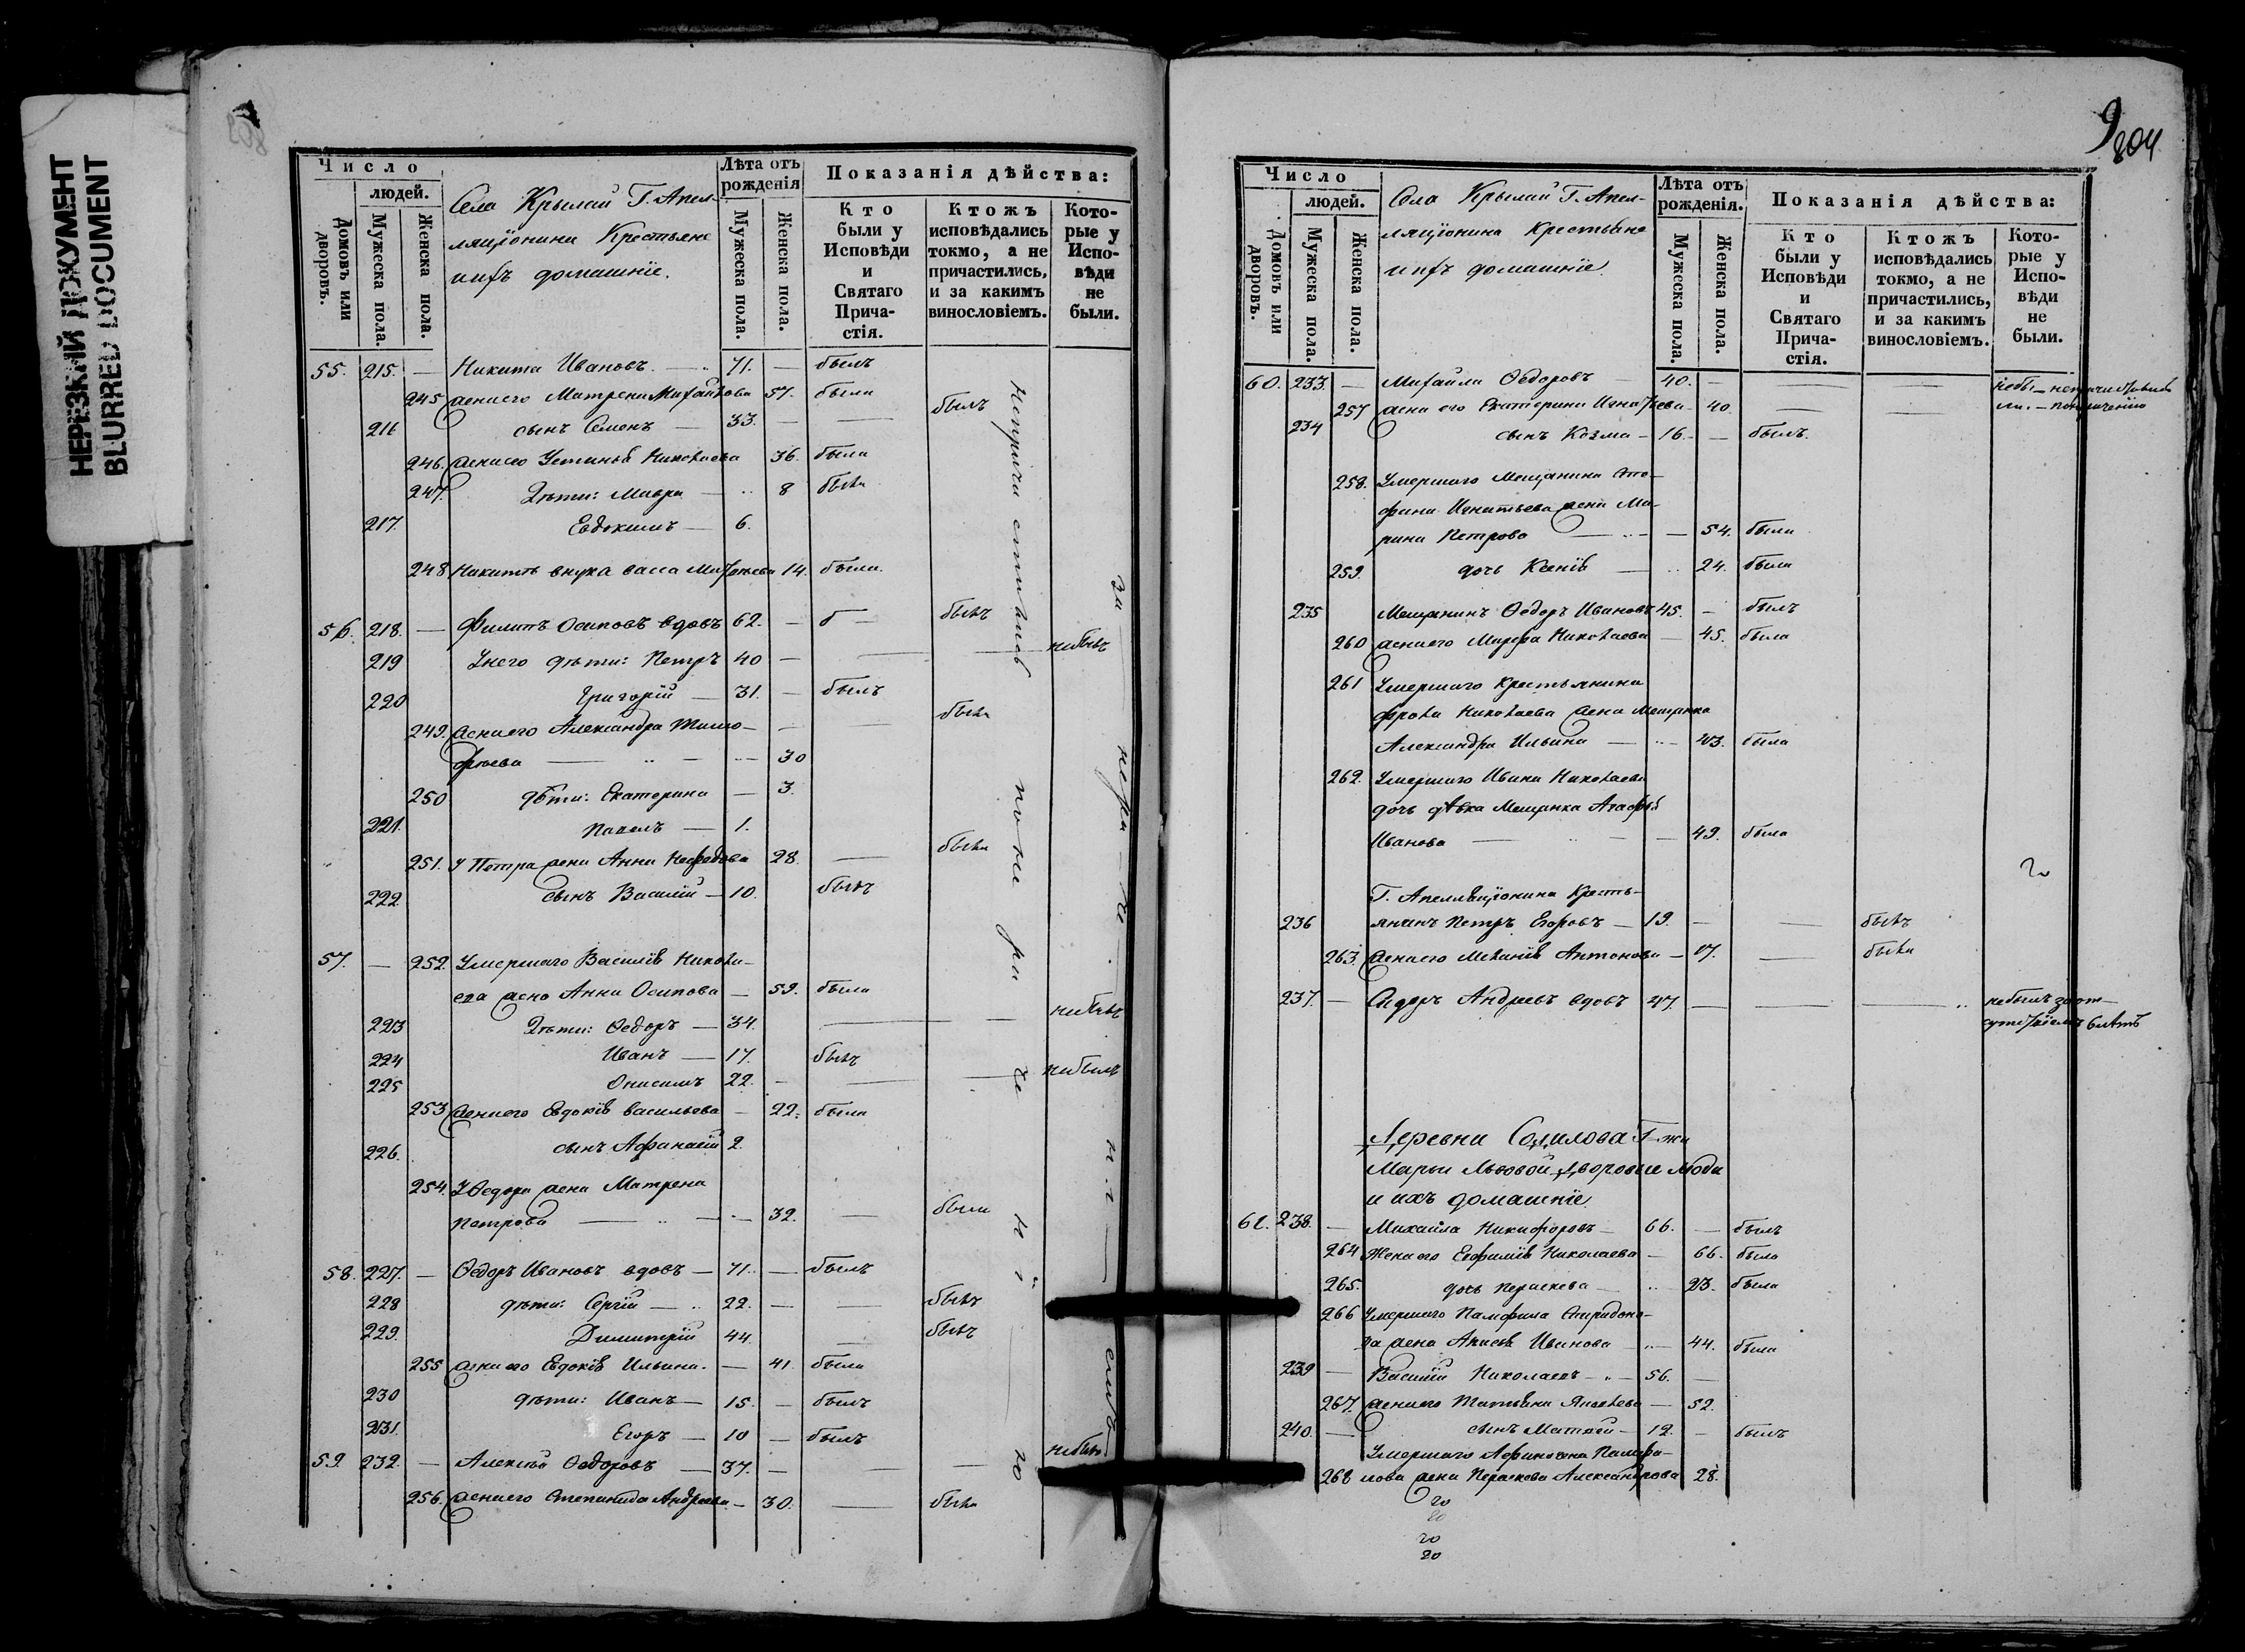 НЕРЕЗКИЙ ДОКУМЕНТ
BLURRED DOCUMENT
Число
людей.
Домовъ или дворовъ.
Мужеска пола.
Женска пола.
Села Крылай Г. Апел-
ляціонина Крестьяне
ихъ домашніе.
Лѣта отъ рожденія
Мужеска пола.
Женска пола.
Показанія дѣйства:
Кто были у Исповѣди и Святаго Прича-стія.
Ктожъ исповѣдались токмо, а не причастились, и за какимъ винословіемъ.
Кото-рые у Испо-вѣди не были.
55. 215. — Никита Ивановъ — 71. — былъ
245 жена его Матрена Михайлова 57. была
216 сынъ Семенъ — 33. — — былъ
246. жена его Устинья Николаева 36. была
247. Дѣти: Мавра — 8 была
217. Евдокимъ — 6.
248 Никиты внука Васса 14. была
56. 218. — Филипъ Осиповъ вдовъ 62. — былъ
219 У него дѣти: Петръ 40 — — — небылъ
220 Григорій — 31. — былъ
249. жена его Александра Тимо- — — была
фѣева — — 30
250 дѣти: Екатерина — 3.
221. Павелъ — 1.
251. У Петра жена Анна Нефедова 28. — была
222. сынъ Василій — 10. былъ
57. — 252. Умершаго Василія Никола-
ева жена Анна Осипова — 59. была
223 Дѣти: Ѳедоръ — 34. — — небылъ
224 Иванъ — 17. былъ
225 Онисимъ 22. — — — небылъ
253 жена его Евдокія Васильева — 22. была
226. сынъ Афанасій 2.
254. У Ѳедора жена Матрена
Петрова — — 32. — была
58. 227. — Ѳедоръ Ивановъ вдовъ — 71. — былъ
228 дѣти: Сергій — 22. — — былъ
229. Димитрій 44. — былъ
255 жена его Евдокія Ильина. — 41. была
230 дѣти: Иванъ — 15. — былъ
231. Егоръ — 10 — былъ
59. 232. — Алексѣй Ѳедоровъ — 37. — — небылъ
256. жена его Степанида Андреева — 30. — была
9
804
Число
людей.
Домовъ или дворовъ.
Мужеска пола.
Женска пола.
Села Крылай Г. Апел-
ляціонина Крестьяне
ихъ домашніе.
Лѣта отъ рожденія.
Мужеска пола.
Женска пола.
Показанія дѣйства:
Кто были у Исповѣди и Святаго Прича-стія.
Ктожъ исповѣдались токмо, а не причастились, и за какимъ винословіемъ.
Кото-рые у Испо-вѣди не были.
60. 233. — Михайла Ѳедоровъ — 40. — — —
257 жена его Екатерина Игнатьева 40. — —
234 сынъ Козма — 16. — былъ.
258. Умершаго Мещанина
Игнатьева жена Ма-
рина Петрова — — 54. была
259. дочь Ксенія — 24. была
235 Мещанинъ Ѳедоръ Ивановъ 45. — былъ
260 жена его Марфа Николаева — 45. была
261 Умершаго Крестьянина
Фрола Николаева жена Мещанка
Александра Ильина — 43. была
262. Умершаго Ивана Николаева
дочь дѣвка Мещанка Агафья
Иванова — — 49. была
Г. Апелляціонина Кресть-
236 янинъ Петръ Егоровъ — 19. — — былъ
263. жена его Меланія Антонова — 17. — была
237. — Сидоръ Андреевъ вдовъ 47. — — — небылъ за от-
Деревни Солилова Г-жи
Марьи Львовой дворовые люди
и ихъ домашніе
61. 238. — Михайла Никифоровъ — 66. — былъ
264 Жена его Евфимія Николаева — 66. была
265. дочь Параскева — 23. была
266 Умершаго Памфила Спиридоно-
ва жена Анисья Иванова — 44. была
239 — Василій Николаевъ — 56. —
267. жена его Татьяна Яковлева — 52.
240. — сынъ Матвѣй — 12. — былъ
Умершаго Афиногена Памфи-
268 лова жена Параскева Александрова 28.